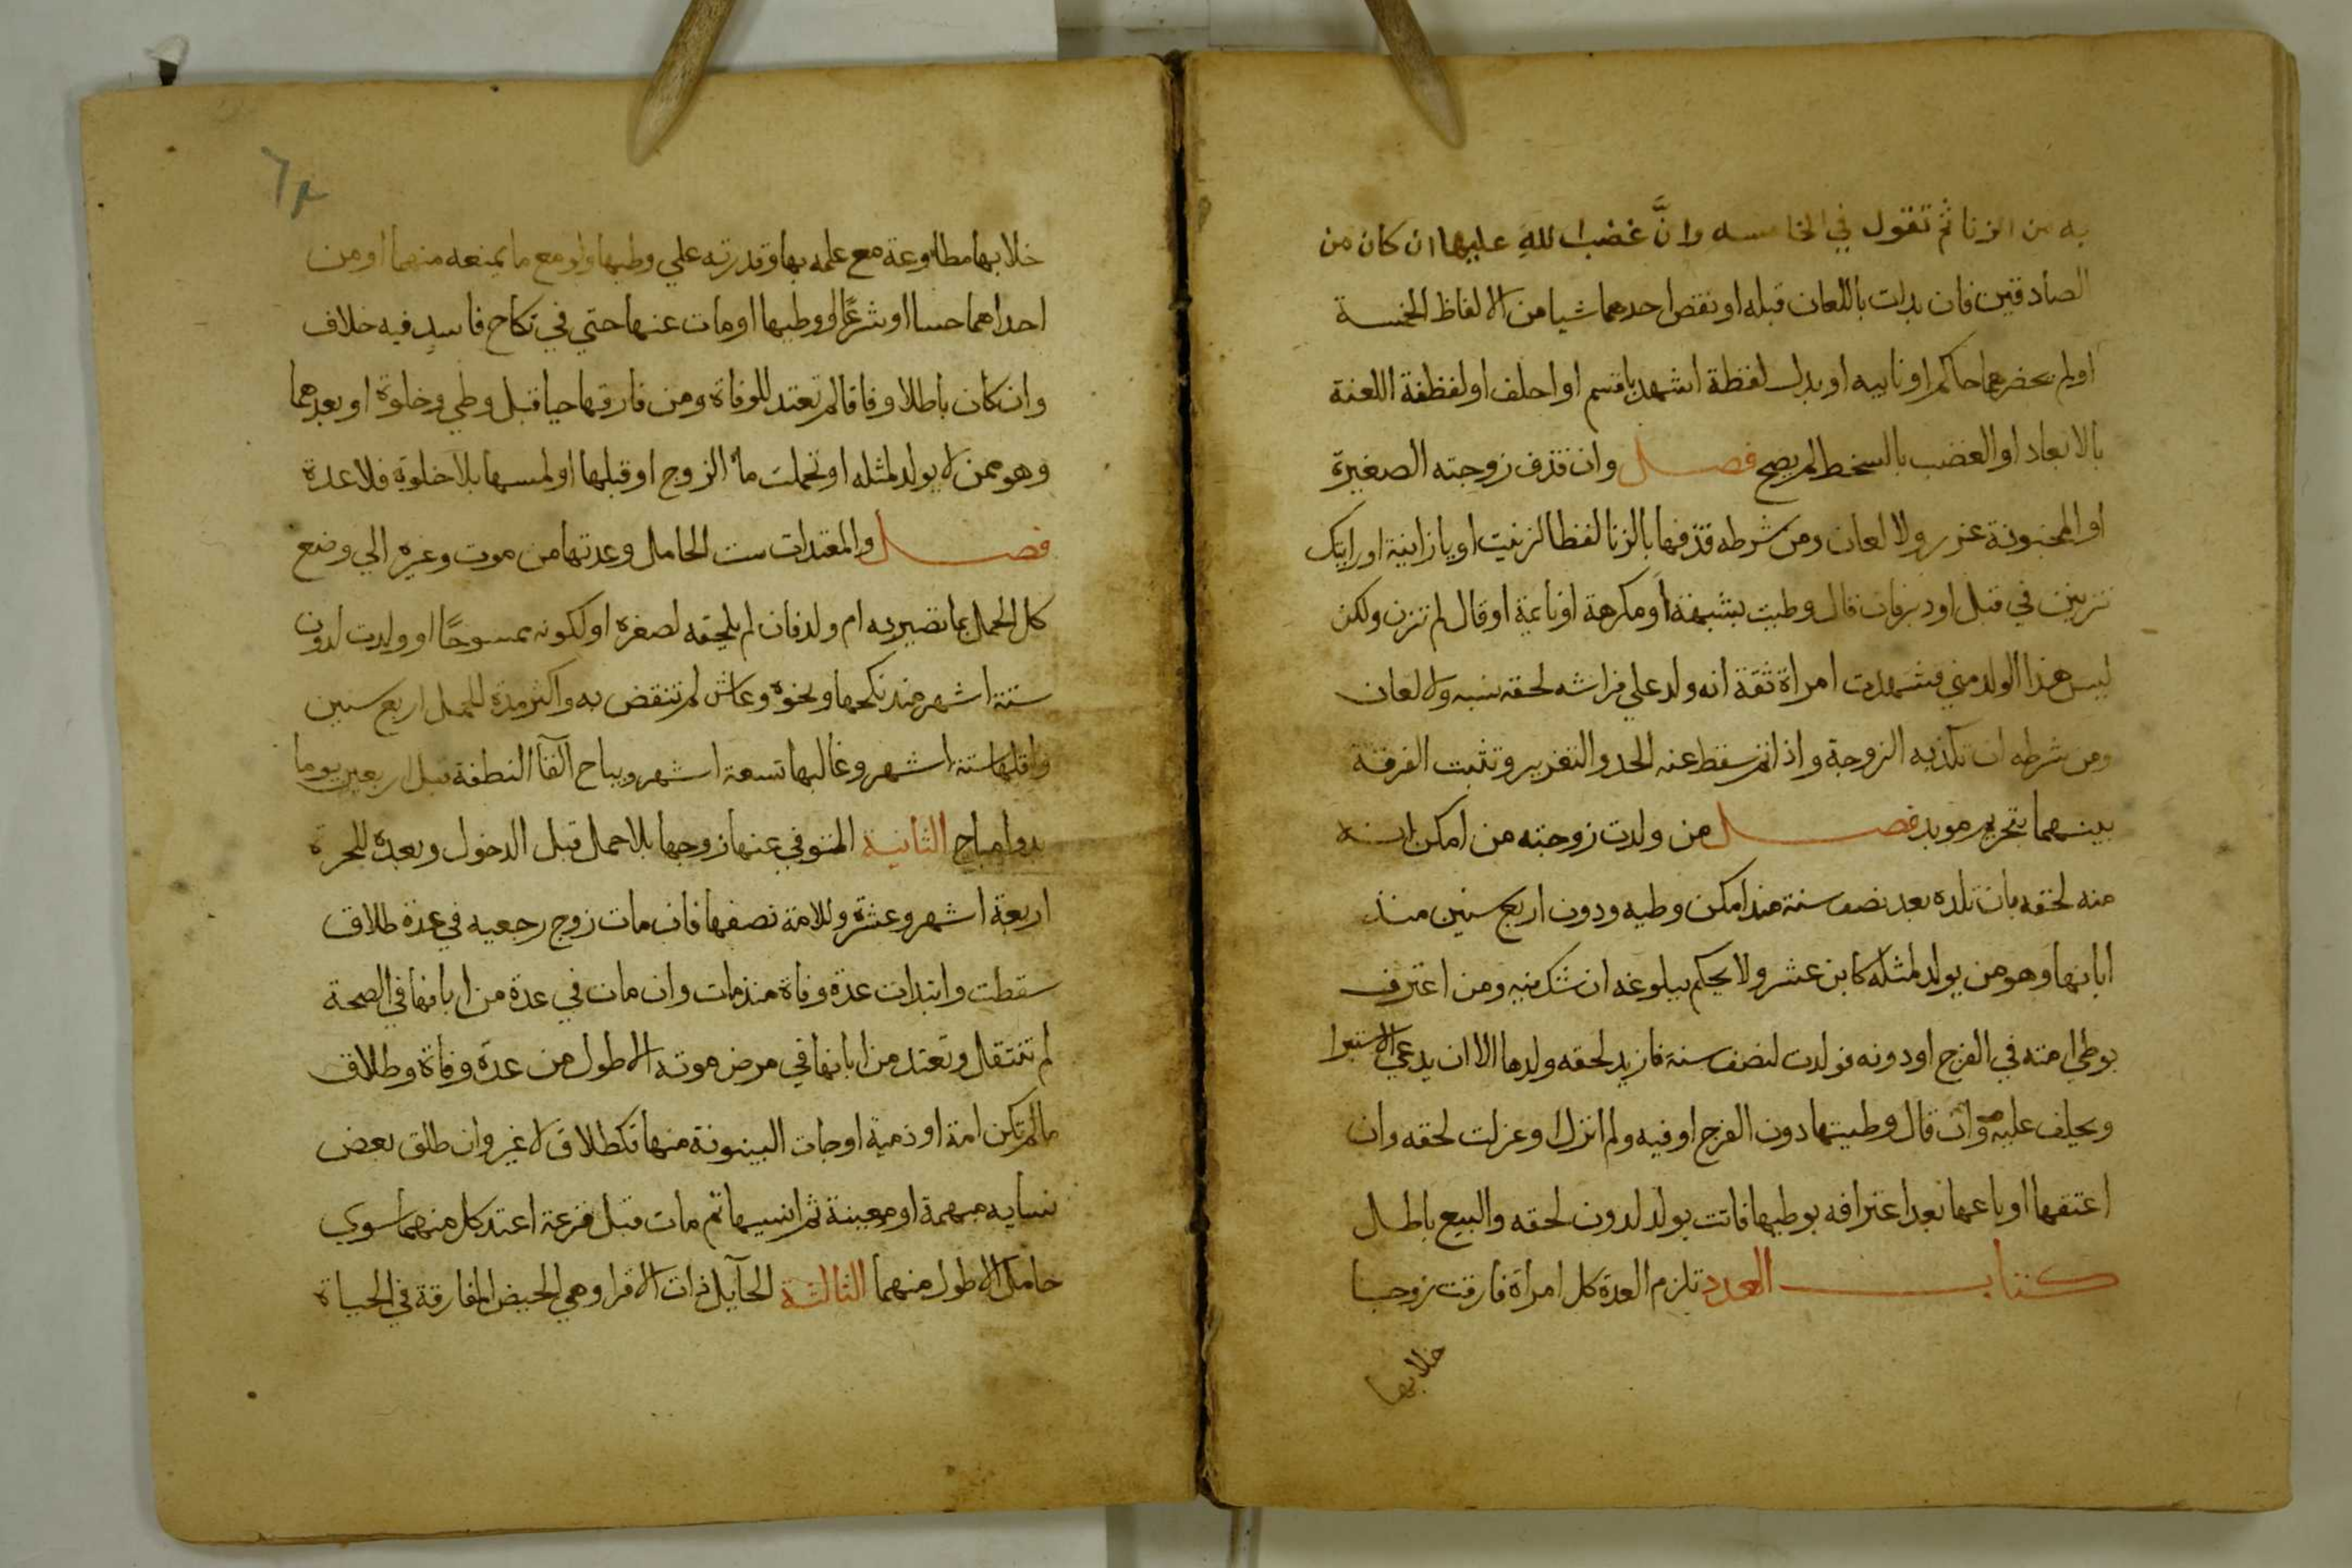 به من الزنا ثم تقول في الخامسه وانَّ غضب اللهِ عليها ان كان من
الصادقين فان بدات باللعان قبله او نقص احدهما شيا من الالفاظ الخمسة
او لم يحضرهما حاكم او نايبه او بدل لفظة اشهد باقسم او احلف او لفظة اللعنة
بالابعاد او الغضب بالسخط لم يصح فصل وان قذف زوجته الصغيرة
او المجنونة عزر ولا لعان ومن شرطه قذفها بالزنا لفظا كزنيت او يا زانية او رايتك
تزنين في قبل او دبر فان قال وطيت بشبهة او مكرهة او نايمة او قال لم تزن ولكن
ليس هذا الولد مني فشهدت امراة ثقة انه ولد علي فراشه لحقه نسبه ولا لعان
ومن شرطه ان تكذبه الزوجة واذا تم سقط عنه الحد والتعزير وتثبت الفرقة
بينهما بتحريم موبد فصل من ولدت زوجته من امكن انه
منه لحقه بان تلده بعد نصف سنة منذ امكن وطيه ودون اربع سنين منذ
ابانها وهو من يولد لمثله كابن عشر ولا يحكم ببلوغه ان شك فيه ومن اعترف
بوطي امته في الفرج او دونه فولدت لنصف سنة فازيد لحقه ولدها الا ان يدعي الاستبرا
ويحلف عليه وان قال وطيتها دون الفرج او فيه ولم انزل او عزلت لحقه وان
اعتقها او باعها بعد اعترافه بوطيها فاتت بولد لدون لحقه والبيع باطل
كتاب العدد تلزم العدة كل امراة فارقت زوجا
خلا بها
٦٤
خلا بها مطاوعة مع علمه بها وقدرته علي وطيها ولو مع ما يمنعه منهما او من
احداهما حسا او شرعًا او وطيها او مات عنها حتي في نكاح فاسدٍ فيه خلاف
وان كان باطلا وفاقا لم تعتد للوفاة ومن فارقها حيا قبل وطي وخلوة او بعدهما
وهو ممن لا يولد لمثله او تحملت ما الزوج او قبلها او لمسها بلا خلوة فلا عدة
فصل والمعتدات ست الحامل وعدتها من موت وغيره الي وضع
كل الحمل بما تصير به ام ولد فان لم يلحقه لصغره او لكونه ممسوحًا او ولدت لدون
ستة اشهر منذ نكحها ونحوه وعاش لم تنقض به واكثر مدة الحمل اربع سنين
واقلها ستة اشهر وغالبها تسعة اشهر ويباح القآ النطفة قبل اربعين يوما
بدوا مباح الثانية المتوفي عنها زوجها بلا حمل قبل الدخول وبعده للحرة
اربعة اشهر وعشرة وللامة نصفها فان مات زوج رجعيه في عدة طلاق
سقطت وابتدات عدة وفاة منذ مات وان مات في عدة من ابانها في الصحة
لم تنتقل وتعتد من ابانها في مرض موته الاطول من عدة وفاة وطلاق
ما لم تكن امة او ذمية او جات البينونة منها فكطلاق لا غير وان طلق بعض
نسايه مبهمة او معينة ثم انسيها ثم مات قبل قرعة اعتد كل منهما سوي
حامل الاطول منهما الثالثة الحآيل ذات الاقرا وهي الحيض المفارقة في الحياة